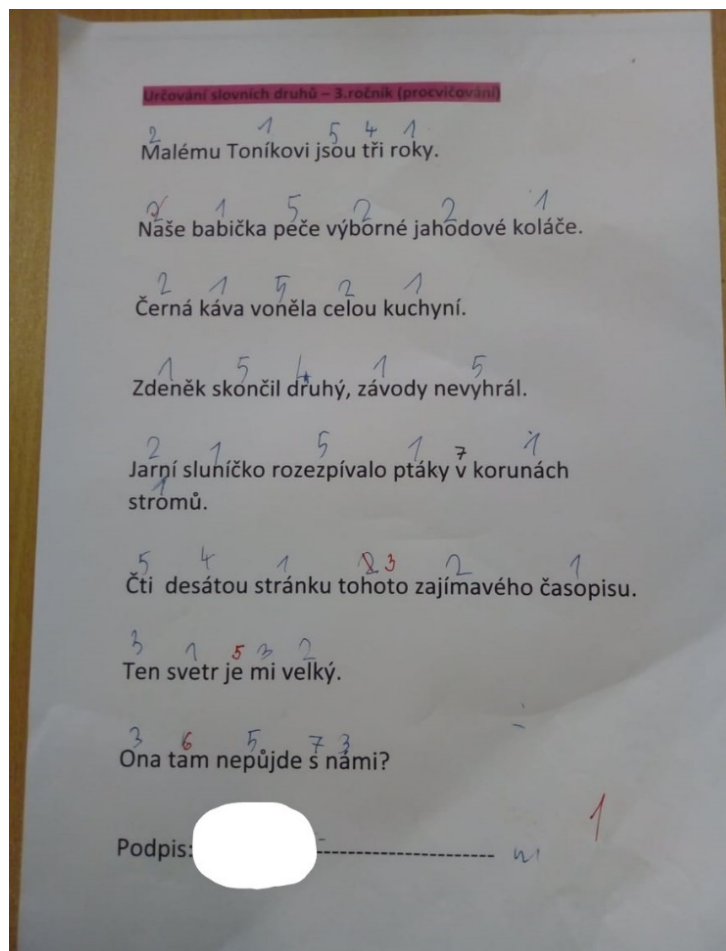 Určování slovních druhů – 3.ročník (procvičování)
2 1 5 4 1
Malému Toníkovi jsou tři roky.
2 1 5 2 2 1
Naše babička peče výborné jahodové koláče.
2 1 5 2 1
Černá káva voněla celou kuchyní.
1 5 4 1 5
Zdeněk skončil druhý, závody nevyhrál.
2 1 5 1 7 1
Jarní sluníčko rozezpívalo ptáky v korunách
1
stromů.
5 4 1 2 3 2 1
Čti desátou stránku tohoto zajímavého časopisu.
3 1 5 3 2
Ten svetr je mi velký.
3 6 5 7 3
Ona tam nepůjde s námi?
1
Podpis: --------------------